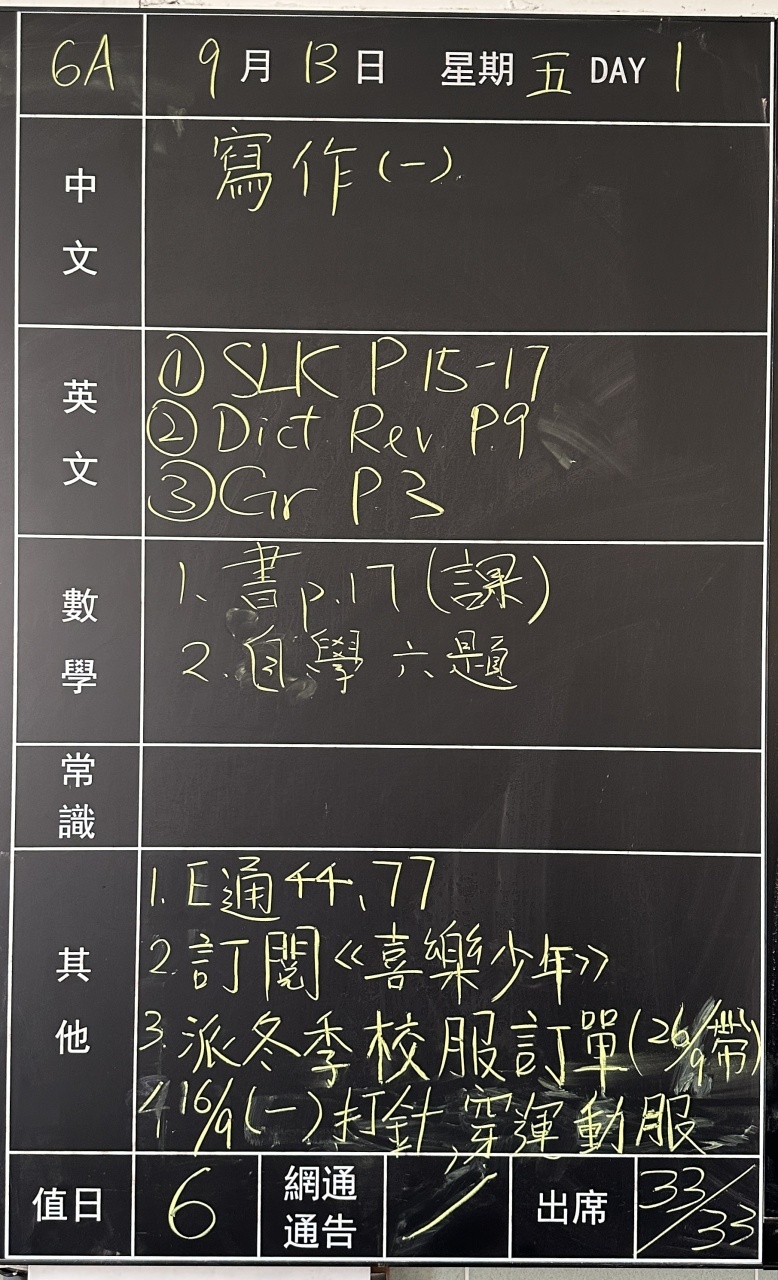 6A 9月13日 星期五 DAY 1
中文
寫作(一)
英文
① SLK P 15-17
② Dict Rev P.9
③ Gr P.3
數學
1. 書p.17(課)
2. 自學六題
常識
其他
1. E通44、77
2. 訂閱《喜樂少年》
3. 派冬季校服訂單(26/9帶)
4. 16/9(一)打針,穿運動服
值日 6 網通通告 / 出席 33/33